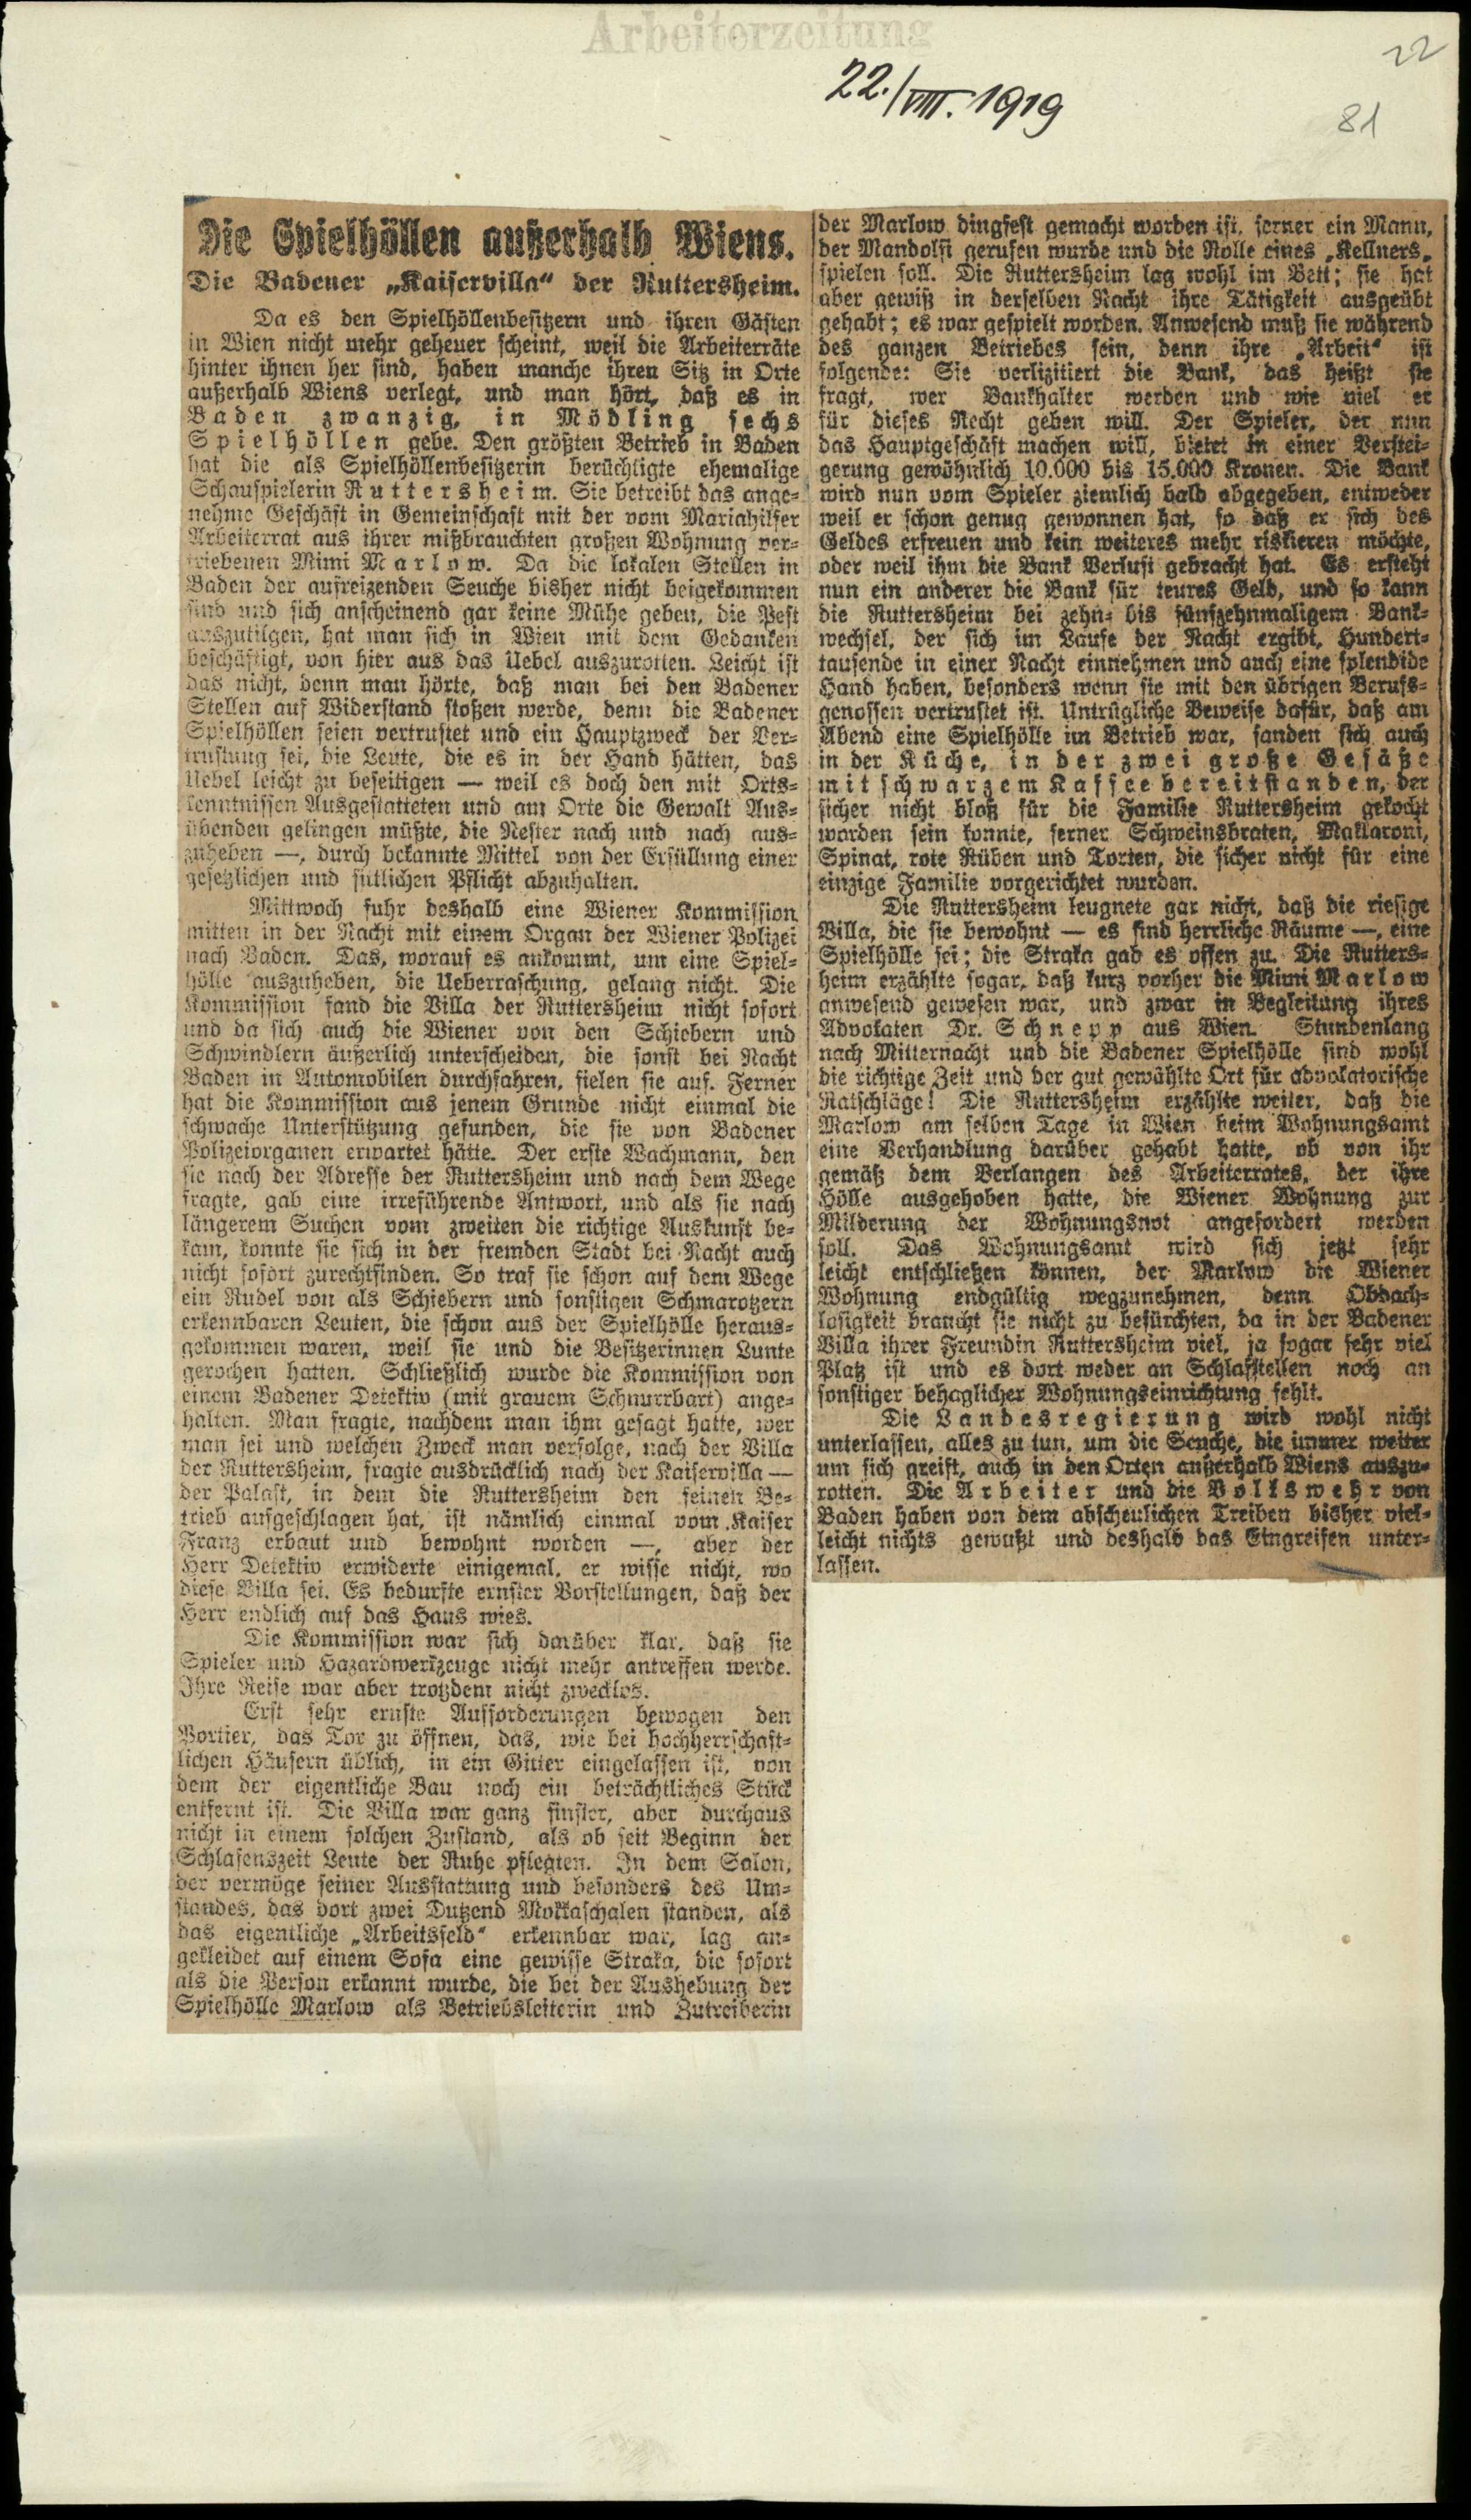 Arbeiterzeitung
22
22./VIII. 1919
81
Die Spielhöllen außerhalb Wiens.
Die Badener „Kaiservilla“ der Ruttersheim.
Da es den Spielhöllenbesitzern und ihren Gästen
in Wien nicht mehr geheuer scheint, weil die Arbeiterräte
hinter ihnen her sind, haben manche ihren Sitz in Orte
außerhalb Wiens verlegt, und man hört, daß es in
Baden zwanzig, in Mödling sechs
Spielhöllen gebe. Den größten Betrieb in Baden
hat die als Spielhöllenbesitzerin berüchtigte ehemalige
Schauspielerin Ruttersheim. Sie betreibt das ange-
nehme Geschäft in Gemeinschaft mit der vom Mariahilfer
Arbeiterrat aus ihrer mißbrauchten großen Wohnung ver-
triebenen Mimi Marlow. Da die lokalen Stellen in
Baden der aufreizenden Seuche bisher nicht beigekommen
sind und sich anscheinend gar keine Mühe geben, die Pest
auszutilgen, hat man sich in Wien mit dem Gedanken
beschäftigt, von hier aus das Uebel auszurotten. Leicht ist
das nicht, denn man hörte, daß man bei den Badener
Stellen auf Widerstand stoßen werde, denn die Badener
Spielhöllen seien vertrustet und ein Hauptzweck der Ver-
trustung sei, die Leute, die es in der Hand hätten, das
Uebel leicht zu beseitigen — weil es doch den mit Orts-
kenntnissen Ausgestatteten und am Orte die Gewalt Aus-
übenden gelingen müßte, die Nester nach und nach aus-
zuheben —, durch bekannte Mittel von der Erfüllung einer
gesetzlichen und sittlichen Pflicht abzuhalten.
Mittwoch fuhr deshalb eine Wiener Kommission
mitten in der Nacht mit einem Organ der Wiener Polizei
nach Baden. Das, worauf es ankommt, um eine Spiel-
hölle auszuheben, die Ueberraschung, gelang nicht. Die
Kommission fand die Villa der Ruttersheim nicht sofort
und da sich auch die Wiener von den Schiebern und
Schwindlern äußerlich unterscheiden, die sonst bei Nacht
Baden in Automobilen durchfahren, fielen sie auf. Ferner
hat die Kommission aus jenem Grunde nicht einmal die
schwache Unterstützung gefunden, die sie von Badener
Polizeiorganen erwartet hätte. Der erste Wachmann, den
sie nach der Adresse der Ruttersheim und nach dem Wege
fragte, gab eine irreführende Antwort, und als sie nach
längerem Suchen vom zweiten die richtige Auskunft be-
kam, konnte sie sich in der fremden Stadt bei Nacht auch
nicht sofort zurechtfinden. So traf sie schon auf dem Wege
ein Rudel von als Schiebern und sonstigen Schmarotzern
erkennbaren Leuten, die schon aus der Spielhölle heraus-
gekommen waren, weil sie und die Besitzerinnen Lunte
gerochen hatten. Schließlich wurde die Kommission von
einem Badener Detektiv (mit grauem Schnurrbart) ange-
halten. Man fragte, nachdem man ihm gesagt hatte, wer
man sei und welchen Zweck man verfolge, nach der Villa
der Ruttersheim, fragte ausdrücklich nach der Kaiservilla —
der Palast, in dem die Ruttersheim den feinen Be-
trieb aufgeschlagen hat, ist nämlich einmal vom Kaiser
Franz erbaut und bewohnt worden —, aber der
Herr Detektiv erwiderte einigemal, er wisse nicht, wo
diese Villa sei. Es bedurfte ernster Vorstellungen, daß der
Herr endlich auf das Haus wies.
Die Kommission war sich darüber klar, daß sie
Spieler und Hazardwerkzeuge nicht mehr antreffen werde.
Ihre Reise war aber trotzdem nicht zwecklos.
Erst sehr ernste Aufforderungen bewogen den
Portier, das Tor zu öffnen, das, wie bei hochherrschaft-
lichen Häusern üblich, in ein Gitter eingelassen ist, von
dem der eigentliche Bau noch ein beträchtliches Stück
entfernt ist. Die Villa war ganz finster, aber durchaus
nicht in einem solchen Zustand, als ob seit Beginn der
Schlafenszeit Leute der Ruhe pflegten. In dem Salon,
der vermöge seiner Ausstattung und besonders des Um-
standes, das dort zwei Dutzend Mokkaschalen standen, als
das eigentliche „Arbeitsfeld“ erkennbar war, lag an-
gekleidet auf einem Sofa eine gewisse Straka, die sofort
als die Person erkannt wurde, die bei der Aushebung der
Spielhölle Marlow als Betriebsleiterin und Zutreiberin
der Marlow dingfest gemacht worden ist, ferner ein Mann,
der Mandolfi gerufen wurde und die Rolle eines „Kellners„
spielen soll. Die Ruttersheim lag wohl im Bett; sie hat
aber gewiß in derselben Nacht ihre Tätigkeit ausgeübt
gehabt; es war gespielt worden. Anwesend muß sie während
des ganzen Betriebes sein, denn ihre „Arbeit“ ist
folgende: Sie verlizitiert die Bank, das heißt sie
fragt, wer Bankhalter werden und wie viel er
für dieses Recht geben will. Der Spieler, der nun
das Hauptgeschäft machen will, bietet in einer Verstei-
gerung gewöhnlich 10.000 bis 15.000 Kronen. Die Bank
wird nun vom Spieler ziemlich bald abgegeben, entweder
weil er schon genug gewonnen hat, so daß er sich des
Geldes erfreuen und kein weiteres mehr riskieren möchte,
oder weil ihm die Bank Verlust gebracht hat. Es ersteht
nun ein anderer die Bank für teures Geld, und so kann
die Ruttersheim bei zehn- bis fünfzehnmaligem Bank-
wechsel, der sich im Laufe der Nacht ergibt, Hundert-
tausende in einer Nacht einnehmen und auch eine splendide
Hand haben, besonders wenn sie mit den übrigen Berufs-
genossen vertrustet ist. Untrügliche Beweise dafür, daß am
Abend eine Spielhölle im Betrieb war, fanden sich auch
in der Küche, in der zwei große Gefäße
mit schwarzem Kaffee bereitstanden, der
sicher nicht bloß für die Familie Ruttersheim gekocht
worden sein konnte, ferner Schweinsbraten, Makkaroni,
Spinat, rote Rüben und Torten, die sicher nicht für eine
einzige Familie vorgerichtet wurden.
Die Ruttersheim leugnete gar nicht, daß die riesige
Villa, die sie bewohnt — es sind herrliche Räume —, eine
Spielhölle sei; die Straka gab es offen zu. Die Rutters-
heim erzählte sogar, daß kurz vorher die Mimi Marlow
anwesend gewesen war, und zwar in Begleitung ihres
Advokaten Dr. Schnepp aus Wien. Stundenlang
nach Mitternacht und die Badener Spielhölle sind wohl
die richtige Zeit und der gut gewählte Ort für advokatorische
Ratschläge! Die Ruttersheim erzählte weiter, daß die
Marlow am selben Tage in Wien beim Wohnungsamt
eine Verhandlung darüber gehabt hatte, ob von ihr
gemäß dem Verlangen des Arbeiterrates, der ihre
Hölle ausgehoben hatte, die Wiener Wohnung zur
Milderung der Wohnungsnot angefordert werden
soll. Das Wohnungsamt wird sich jetzt sehr
leicht entschließen können, der Marlow die Wiener
Wohnung endgültig wegzunehmen, denn Obdach-
losigkeit braucht sie nicht zu befürchten, da in der Badener
Villa ihrer Freundin Ruttersheim viel, ja sogar sehr viel
Platz ist und es dort weder an Schlafstellen noch an
sonstiger behaglicher Wohnungseinrichtung fehlt.
Die Landesregierung wird wohl nicht
unterlassen, alles zu tun, um die Seuche, die immer weiter
um sich greift, auch in den Orten außerhalb Wiens auszu-
rotten. Die Arbeiter und die Volkswehr von
Baden haben von dem abscheulichen Treiben bisher viel-
leicht nichts gewußt und deshalb das Eingreifen unter-
lassen.